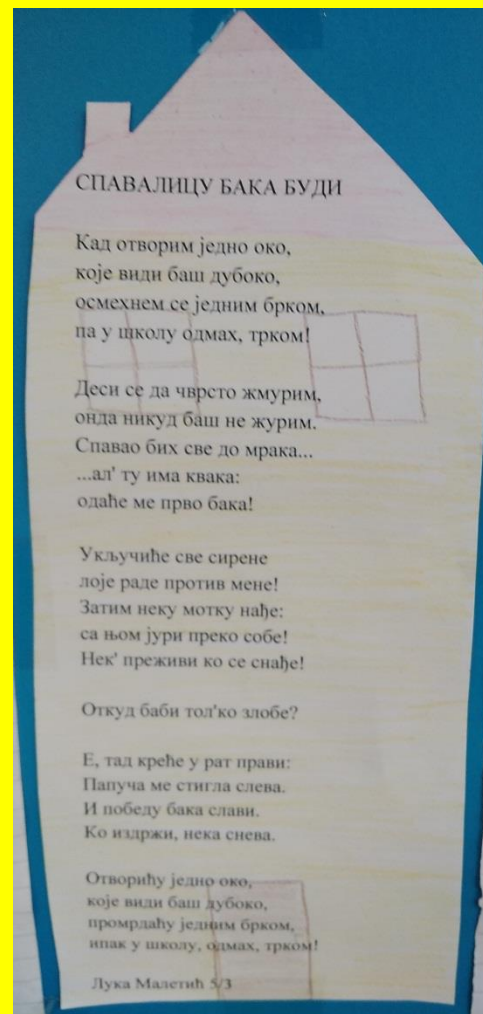 СПАВАЛИЦУ БАКА БУДИ
Кад отворим једно око,
које види баш дубоко,
осмехнем се једним брком,
па у школу одмах, трком!
Деси се да чврсто жмурим,
онда никуд баш не журим.
Спавао бих све до мрака...
...ал' ту има квака:
одаће ме прво бака!
Укључиће све сирене
лоје раде против мене!
Затим неку мотку нађе:
са њом јури преко собе!
Нек' преживи ко се снађе!
Откуд баби тол'ко злобе?
Е, тад креће у рат прави:
Папуча ме стигла слева.
И победу бака слави.
Ко издржи, нека снева.
Отворићу једно око,
које види баш дубоко,
промрдаћу једним брком,
ипак у школу, одмах, трком!
Лука Малетић 5/3